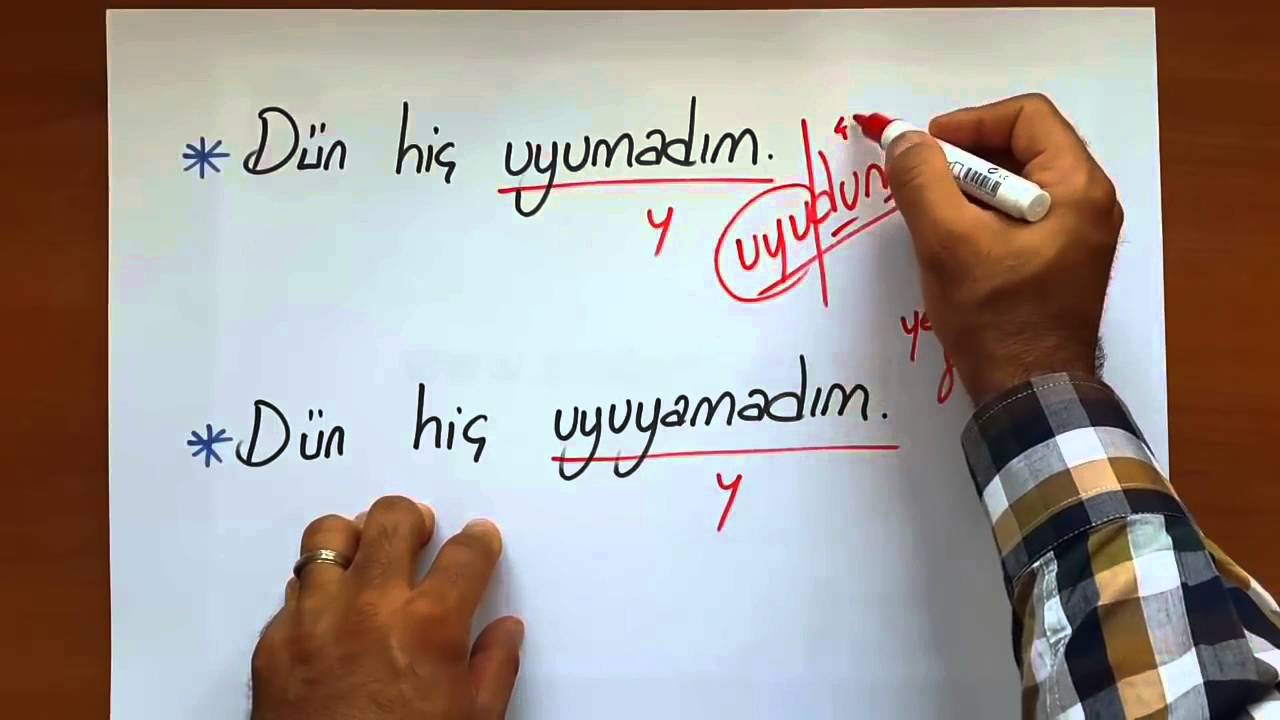 * Dün hiç uyumadım.
y
uyudum
* Dün hiç uyuyamadım.
y